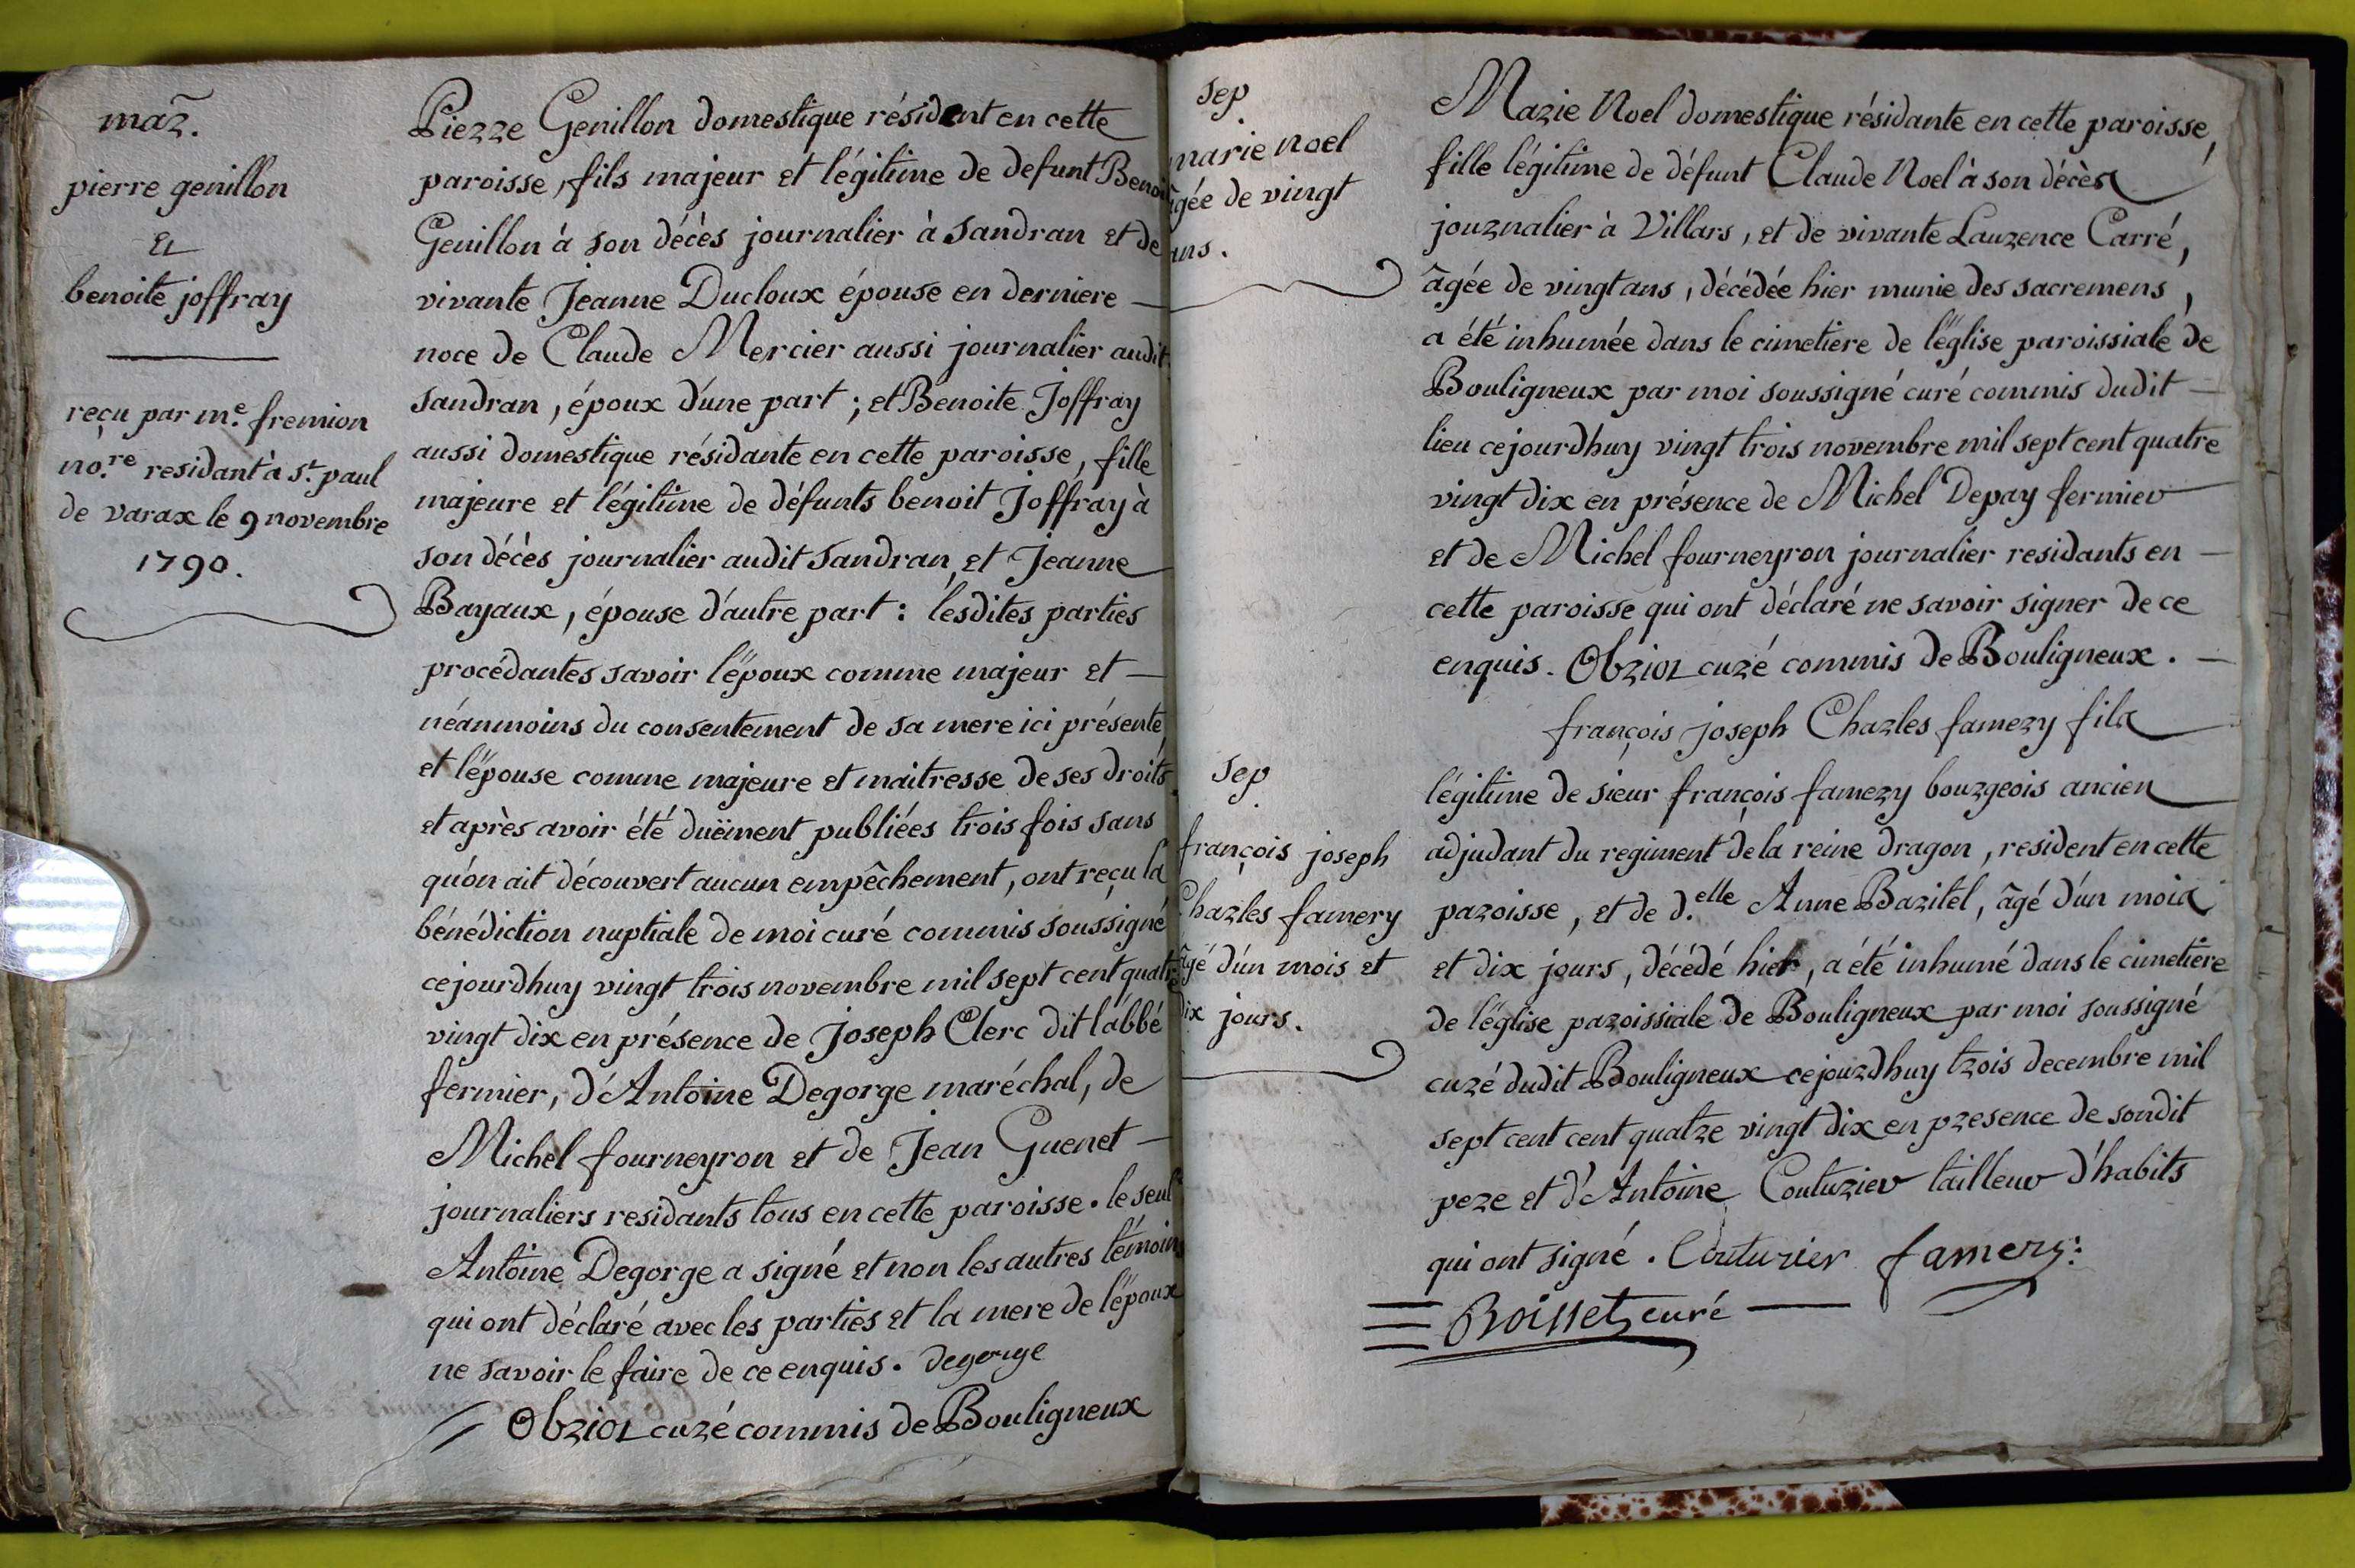 mar.
pierre genillon
et
benoite joffray
reçu par me. fremion
no.re residant à st. paul
de varax le 9 novembre
1790.
Pierre Genillon domestique résident en cette
paroisse, fils majeur et légitime de defunt Benoit
Genillon à son décès journalier à Sandran et de
vivante Jeanne Ducloux épouse en derniere
noce de Claude Mercier aussi journalier audit
Sandran, époux d'une part ; et Benoite Joffray
aussi domestique résidante en cette paroisse, fille
majeure et légitime de défunts benoit Joffray à
son décès journalier audit Sandran, et Jeanne
Bayaux, épouse d'autre part : lesdites parties
procédantes savoir l'époux comme majeur et
néanmoins du consentement de sa mere ici présente,
et l'épouse comme majeure et maitresse de ses droits,
et après avoir été duëment publiées trois fois sans
qu'on ait découvert aucun empêchement, ont reçu la
bénédiction nuptiale de moi curé commis soussigné
cejourdhuy vingt trois novembre mil sept cent quatre
vingt dix en présence de Joseph Clerc dit l'abbé
fermier, d'Antoine Degorge maréchal, de
Michel fourneyron et de Jean Guenet
journaliers residants tous en cette paroisse. le seul
Antoine Degorge a signé et non les autres témoins
qui ont déclaré avec les parties et la mere de l'époux
ne savoir le faire de ce enquis. degorge
Obrior curé commis de Bouligneux
sep
marie noel
âgée de vingt
ans.
Marie Noel domestique résidante en cette paroisse,
fille légitime de défunt Claude Noel à son décès
journalier à Villars, et de vivante Laurence Carré,
âgée de vingt ans, décédée hier munie des sacremens,
a été inhumée dans le cimetiere de l'église paroissiale de
Bouligneux par moi soussigné curé commis dudit
lieu cejourdhuy vingt trois novembre mil sept cent quatre
vingt dix en présence de Michel Depay fermier
et de Michel fourneyron journalier residants en
cette paroisse qui ont déclaré ne savoir signer de ce
enquis. Obrior curé commis de Bouligneux.
sep
françois joseph
Charles famery
âgé d'un mois et
dix jours.
françois joseph Charles famery fils
légitime de sieur françois famery bourgeois ancien
adjudant du regiment de la reine dragon, resident en cette
paroisse, et de d.elle Anne Baritel, âgé d'un mois
et dix jours, décédé hier, a été inhumé dans le cimetiere
de l'église paroissiale de Bouligneux par moi soussigné
curé dudit Bouligneux cejourdhuy trois decembre mil
sept cent cent quatre vingt dix en presence de sondit
pere et d'Antoine Couturier tailleur d'habits
qui ont signé. Couturier famery:
Boisset curé